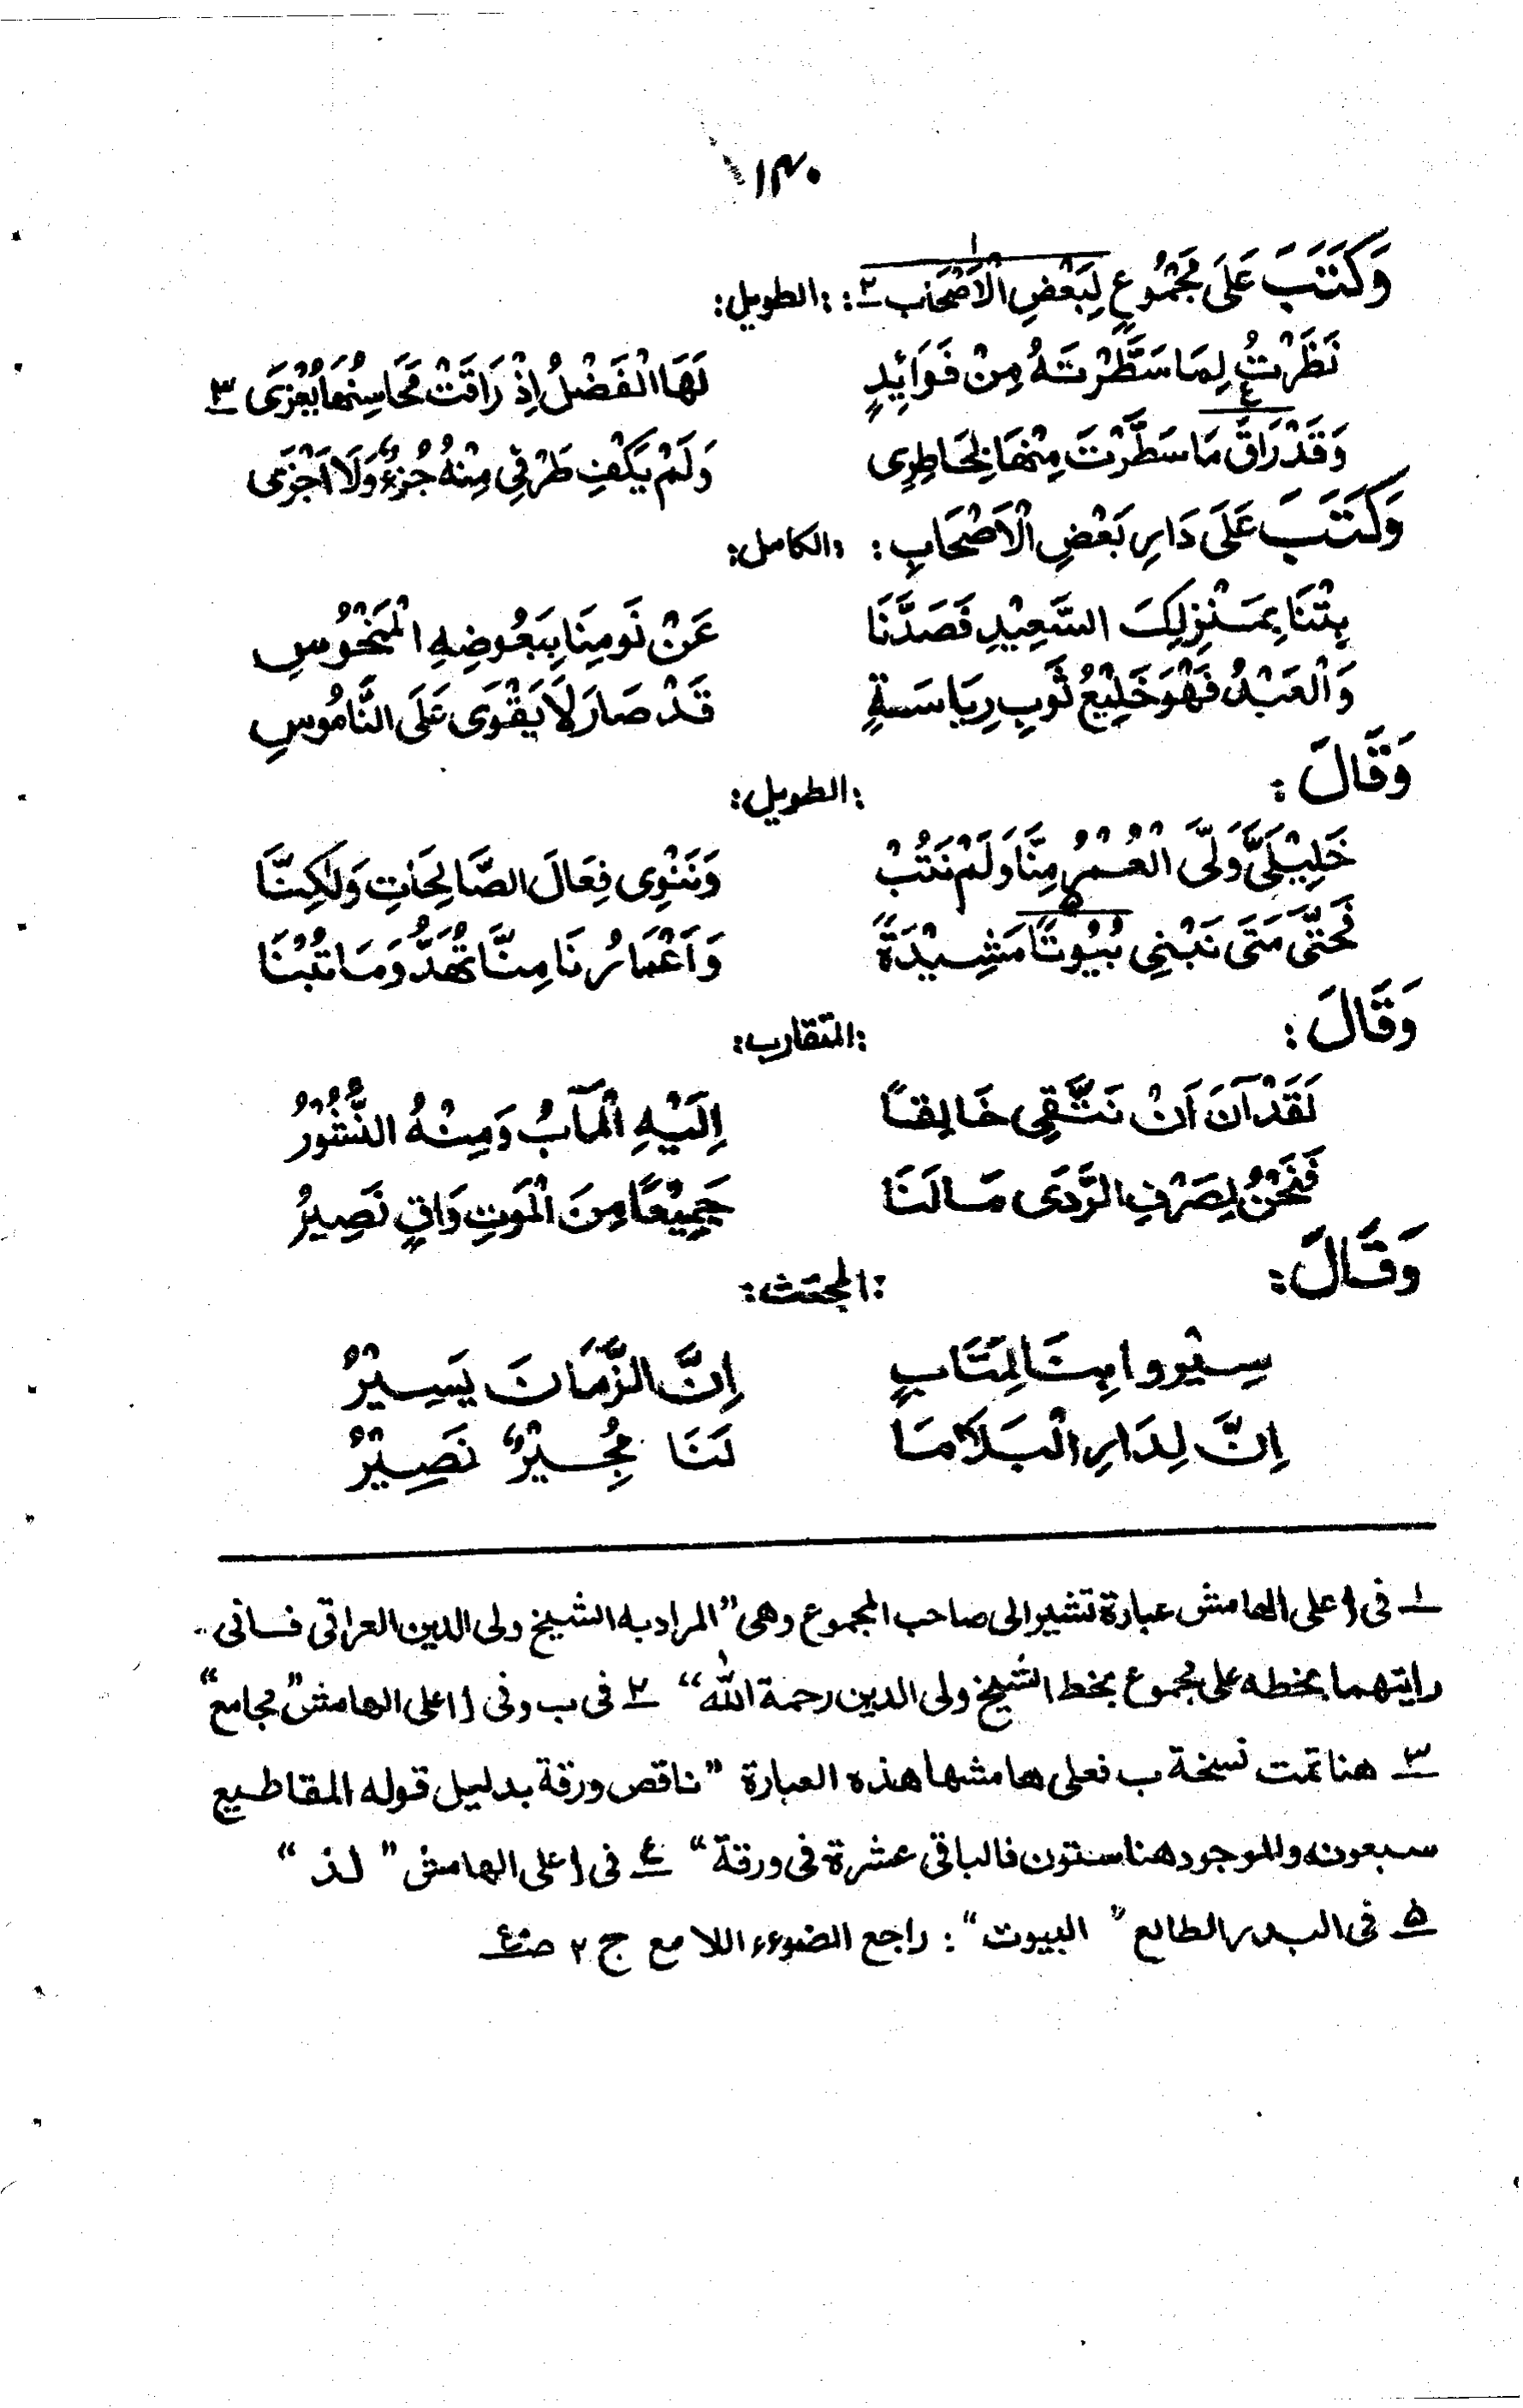 ١٣٠
وَكَتَبَ عَلَى مَجْمُوعٍ لِبَعْضِ الْاَصْحَابِ ١ ٢ : :الطويل:
نَظَرْتُ لِمَا سَطَّرْتَهُ مِنْ فَوَائِدٍ لَهَا الْفَضْلُ اِذْ رَاقَتْ مَحَاسِنُهَا يُعْزَى ٣
وَقَدْ رَاقَ ٤ مَا سَطَّرْتَ مِنْهَا لِخَاطِرِى وَلَمْ يَكْفِ طَرْفِى مِنْهُ جُزْءٌ وَلَا اَجْزَى
وَكَتَبَ عَلَى دَارِ بَعْضِ الْاَصْحَابِ : :الكامل:
بِتْنَا بِمَنْزِلِكَ السَّعِيْدِ فَصَدَّنَا عَنْ نَومِنَا بِبَعُوضِهِ الْمَنْحُوْسِ
وَالْعَبْدُ فَهْوَ خَلِيْعُ ثَوبِ رِيَاسَةٍ قَدْ صَارَ لَا يَقْوَى عَلَى النَّامُوسِ
وَقَالَ : :الطويل:
خَلِيْلَىَّ وَلَّى الْعُمْرُ مِنَّا وَلَمْ نَتُبْ وَنَنْوِى فِعَالَ الصَّالِحَاتِ وَلٰكِنَّا
فَحَتّٰى مَتَى نَبْنِى بُيُوتًا ٥ مَشِيْدَةً وَاَعْمَارُنَا مِنَّا تُهَدُّ وَمَا تُبْنَا
وَقَالَ : :المتقارب:
لَقَدْ آنَ اَنْ نَتَّقِى خَالِقًا اِلَيْهِ الْمَآبُ وَمِنْهُ النُّشُوْرُ
فَنَحْنُ لِصَرْفِ الرَّدَى مَا لَنَا جَمِيْعًا مِنَ الْمَوتِ وَاقٍ نَصِيْرُ
وَقَالَ : :المجتث:
سِيْروا بِنَا لِمَتَابٍ اِنَّ الزَّمَانَ يَسِيْرُ
اِنَّ لِدَارِ الْبَلَا مَا لَنَا مُجِيْرٌ نَصِيْرُ
١ فى ا على الهامش عبارة تشير الى صاحب المجموع وهى "المراد به الشيخ ولى الدين العراقى فانى
رايتهما بخطه على مجموع بخط الشيخ ولى الدين رحمة الله" ٢ فى ب وفى ا على الهامش "مجامع"
٣ هنا تمت نسخة ب فعلى هامشها هذه العبارة "ناقص ورقة بدليل قوله المقاطيع
سبعون والموجود هنا ستون فالباقى عشرة فى ورقة" ٤ فى ا على الهامش "لذ"
٥ فى البدر الطالع "البيوت" : راجع الضوء اللامع ج ٢